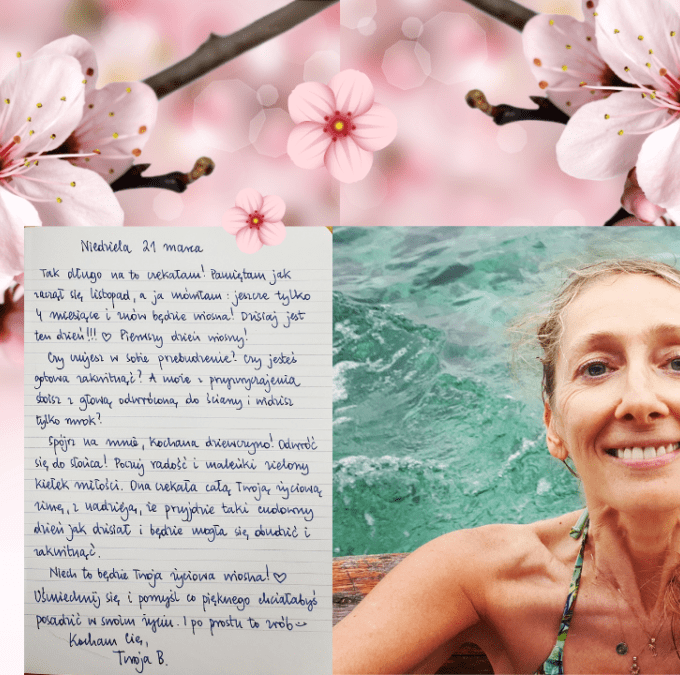 Niedziela 21 marca
Tak długo na to czekałam! Pamiętam jak
zaczął się listopad, a ja mówiłam: jeszcze tylko
4 miesiące i znów będzie wiosna! Dzisiaj jest
ten dzień!!! ♡ Pierwszy dzień wiosny!
Czy czujesz w sobie przebudzenie? Czy jesteś
gotowa zakwitnąć? A może z przyzwyczajenia
stoisz z głową odwróconą do ściany i widzisz
tylko mrok?
Spójrz na mnie, kochana dziewczyno! Odwróć
się do słońca! Poczuj radość i maleńki zielony
kiełek miłości. Ona czekała całą Twoją życiową
zimę, z nadzieją, że przyjdzie taki cudowny
dzień jak dzisiaj i będzie mogła się obudzić i
zakwitnąć.
Niech to będzie Twoja życiowa wiosna! ♡
Uśmiechnij się i pomyśl co pięknego chciałabyś
posadzić w swoim życiu. I po prostu to zrób
Kocham Cię,
Twoja B.